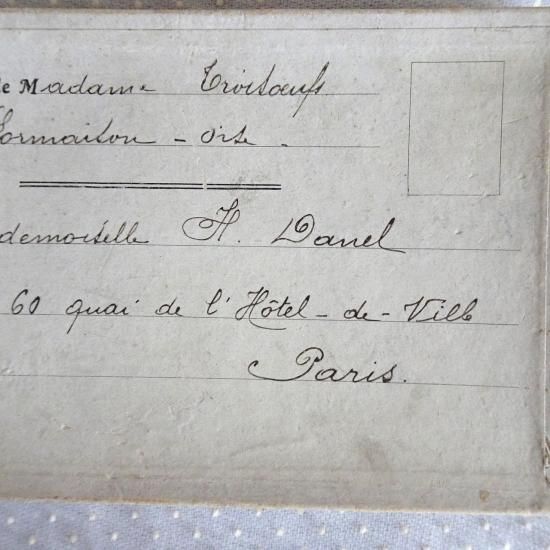 de Madame Troisoeufs
Cormaison - Oise.
demoiselle H. Danel
60 quai de l'Hôtel-de-Ville
Paris.